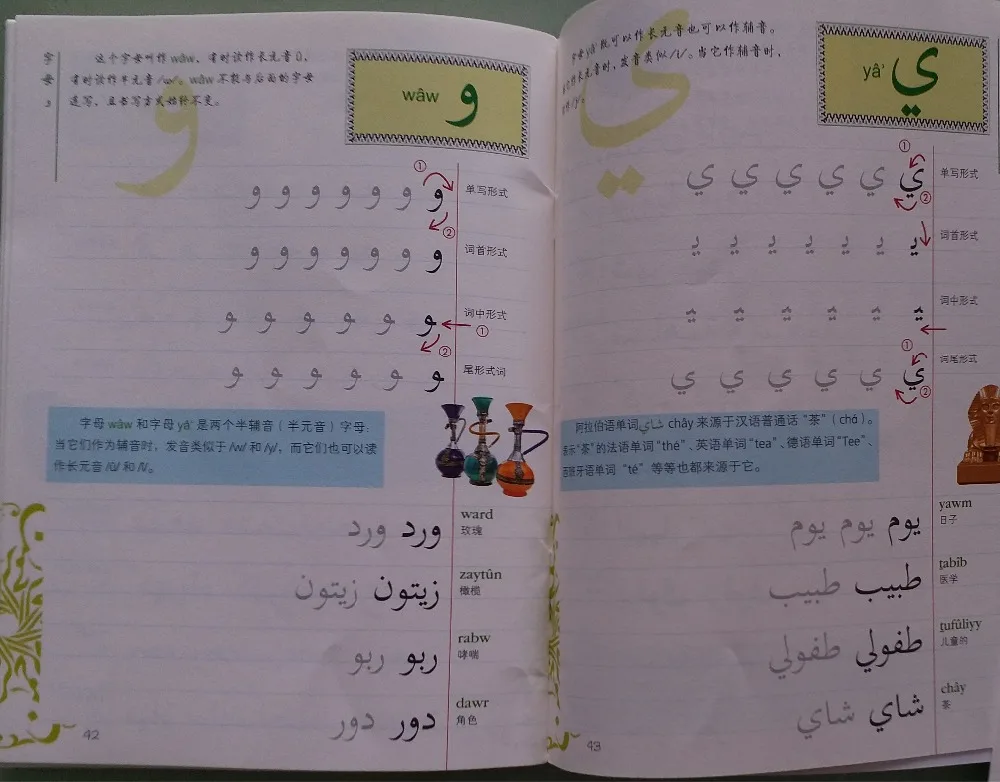 字
母
这个字母叫作 wâw，有时读作长元音 Û，
有时读作半元音 /w/。wâw 不能与后面的字母
连写，且书写方式始终不变。
و
wâw و
و و و و و و و
① ②
单写形式
و و و و و و و
词首形式
ـو ـو ـو ـو ـو ـو
① ②
词中形式
ـو ـو ـو ـو ـو ـو
尾形式词
字母 wâw 和字母 yâ' 是两个半辅音（半元音）字母：
当它们作为辅音时，发音类似于 /w/ 和 /y/，而它们也可以读
作长元音 /û/ 和 /î/。
ward
玫瑰
ورد ورد
zaytûn
橄榄
زيتون زيتون
rabw
哮喘
ربو ربو
dawr
角色
دور دور
42
字母 yâ' 既可以作长元音也可以作辅音。
作长元音时，发音类似 /î/。当它作辅音时，
/y/。
ي
yâ' ي
ي ي ي ي ي ي
① ②
单写形式
يـ يـ يـ يـ يـ يـ
词首形式
ـيـ ـيـ ـيـ ـيـ ـيـ ـيـ
词中形式
ي ي ي ي ي ي
① ②
词尾形式
阿拉伯语单词 شاي chây 来源于汉语普通话 “茶”（chá）。
表示“茶”的法语单词 “thé”、英语单词 “tea”、德语单词 “Tee”、
西班牙语单词 “té” 等等也都来源于它。
yawm
日子
يوم يوم يوم
ṭabîb
医学
طبيب طبيب
ṭufûliyy
儿童的
طفولي طفولي
chây
茶
شاي شاي
43